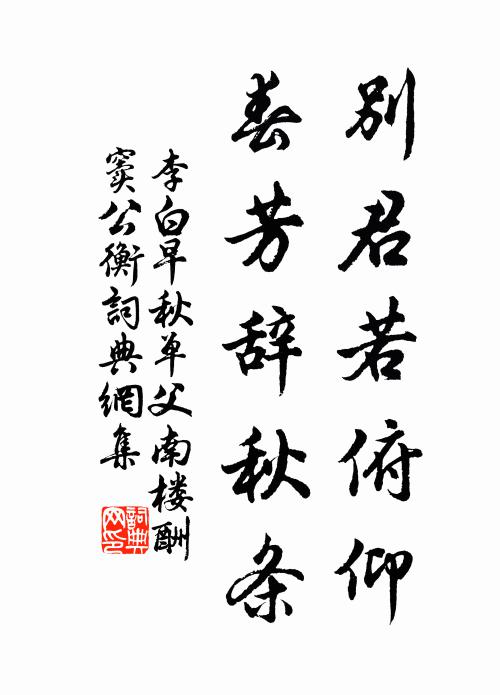 别君若俯仰
春芳辞秋条
李白早秋单父南楼酬
窦公衡词典網集
詞典网印